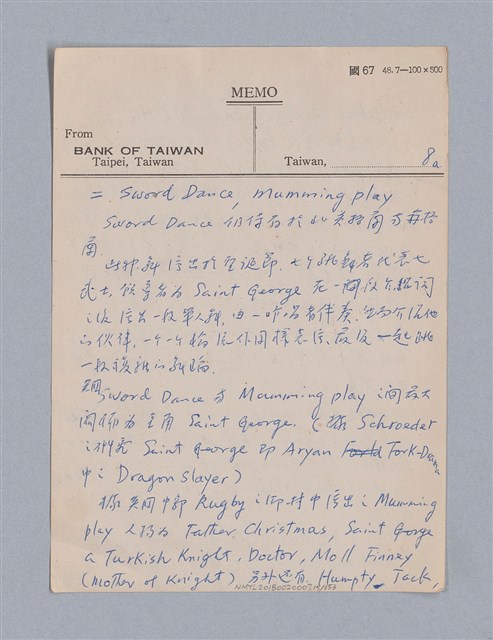 國 67 48.7—100×500
MEMO
From
BANK OF TAIWAN
Taipei, Taiwan
Taiwan, 8a
二. Sword Dance, Mumming play
Sword Dance 仍存在於北英格蘭
蘭.
此種舞 演出於聖誕節. 七個跳舞者代表七
武士, 領導者為 Saint George 在一開
之後演出一段單人舞, 由一 者伴奏,
的伙伴, 一個一個 同樣表演, 最後一起跳
一段複雜的舞蹈.
英國 Sword Dance 與 Mumming play 之間最大
關聯為主角 Saint George. (據 Schroeder
之研究 Saint George 即 Aryan Folk-Drama
中之 Dragon Slayer)
據英國中部 Rugby 之 村中演出之 Mumming
play 人物為 Father Christmas, Saint George
a Turkish Knight, Doctor, Moll Finney
(mother of Knight) 另外還有 Humpty Jack,